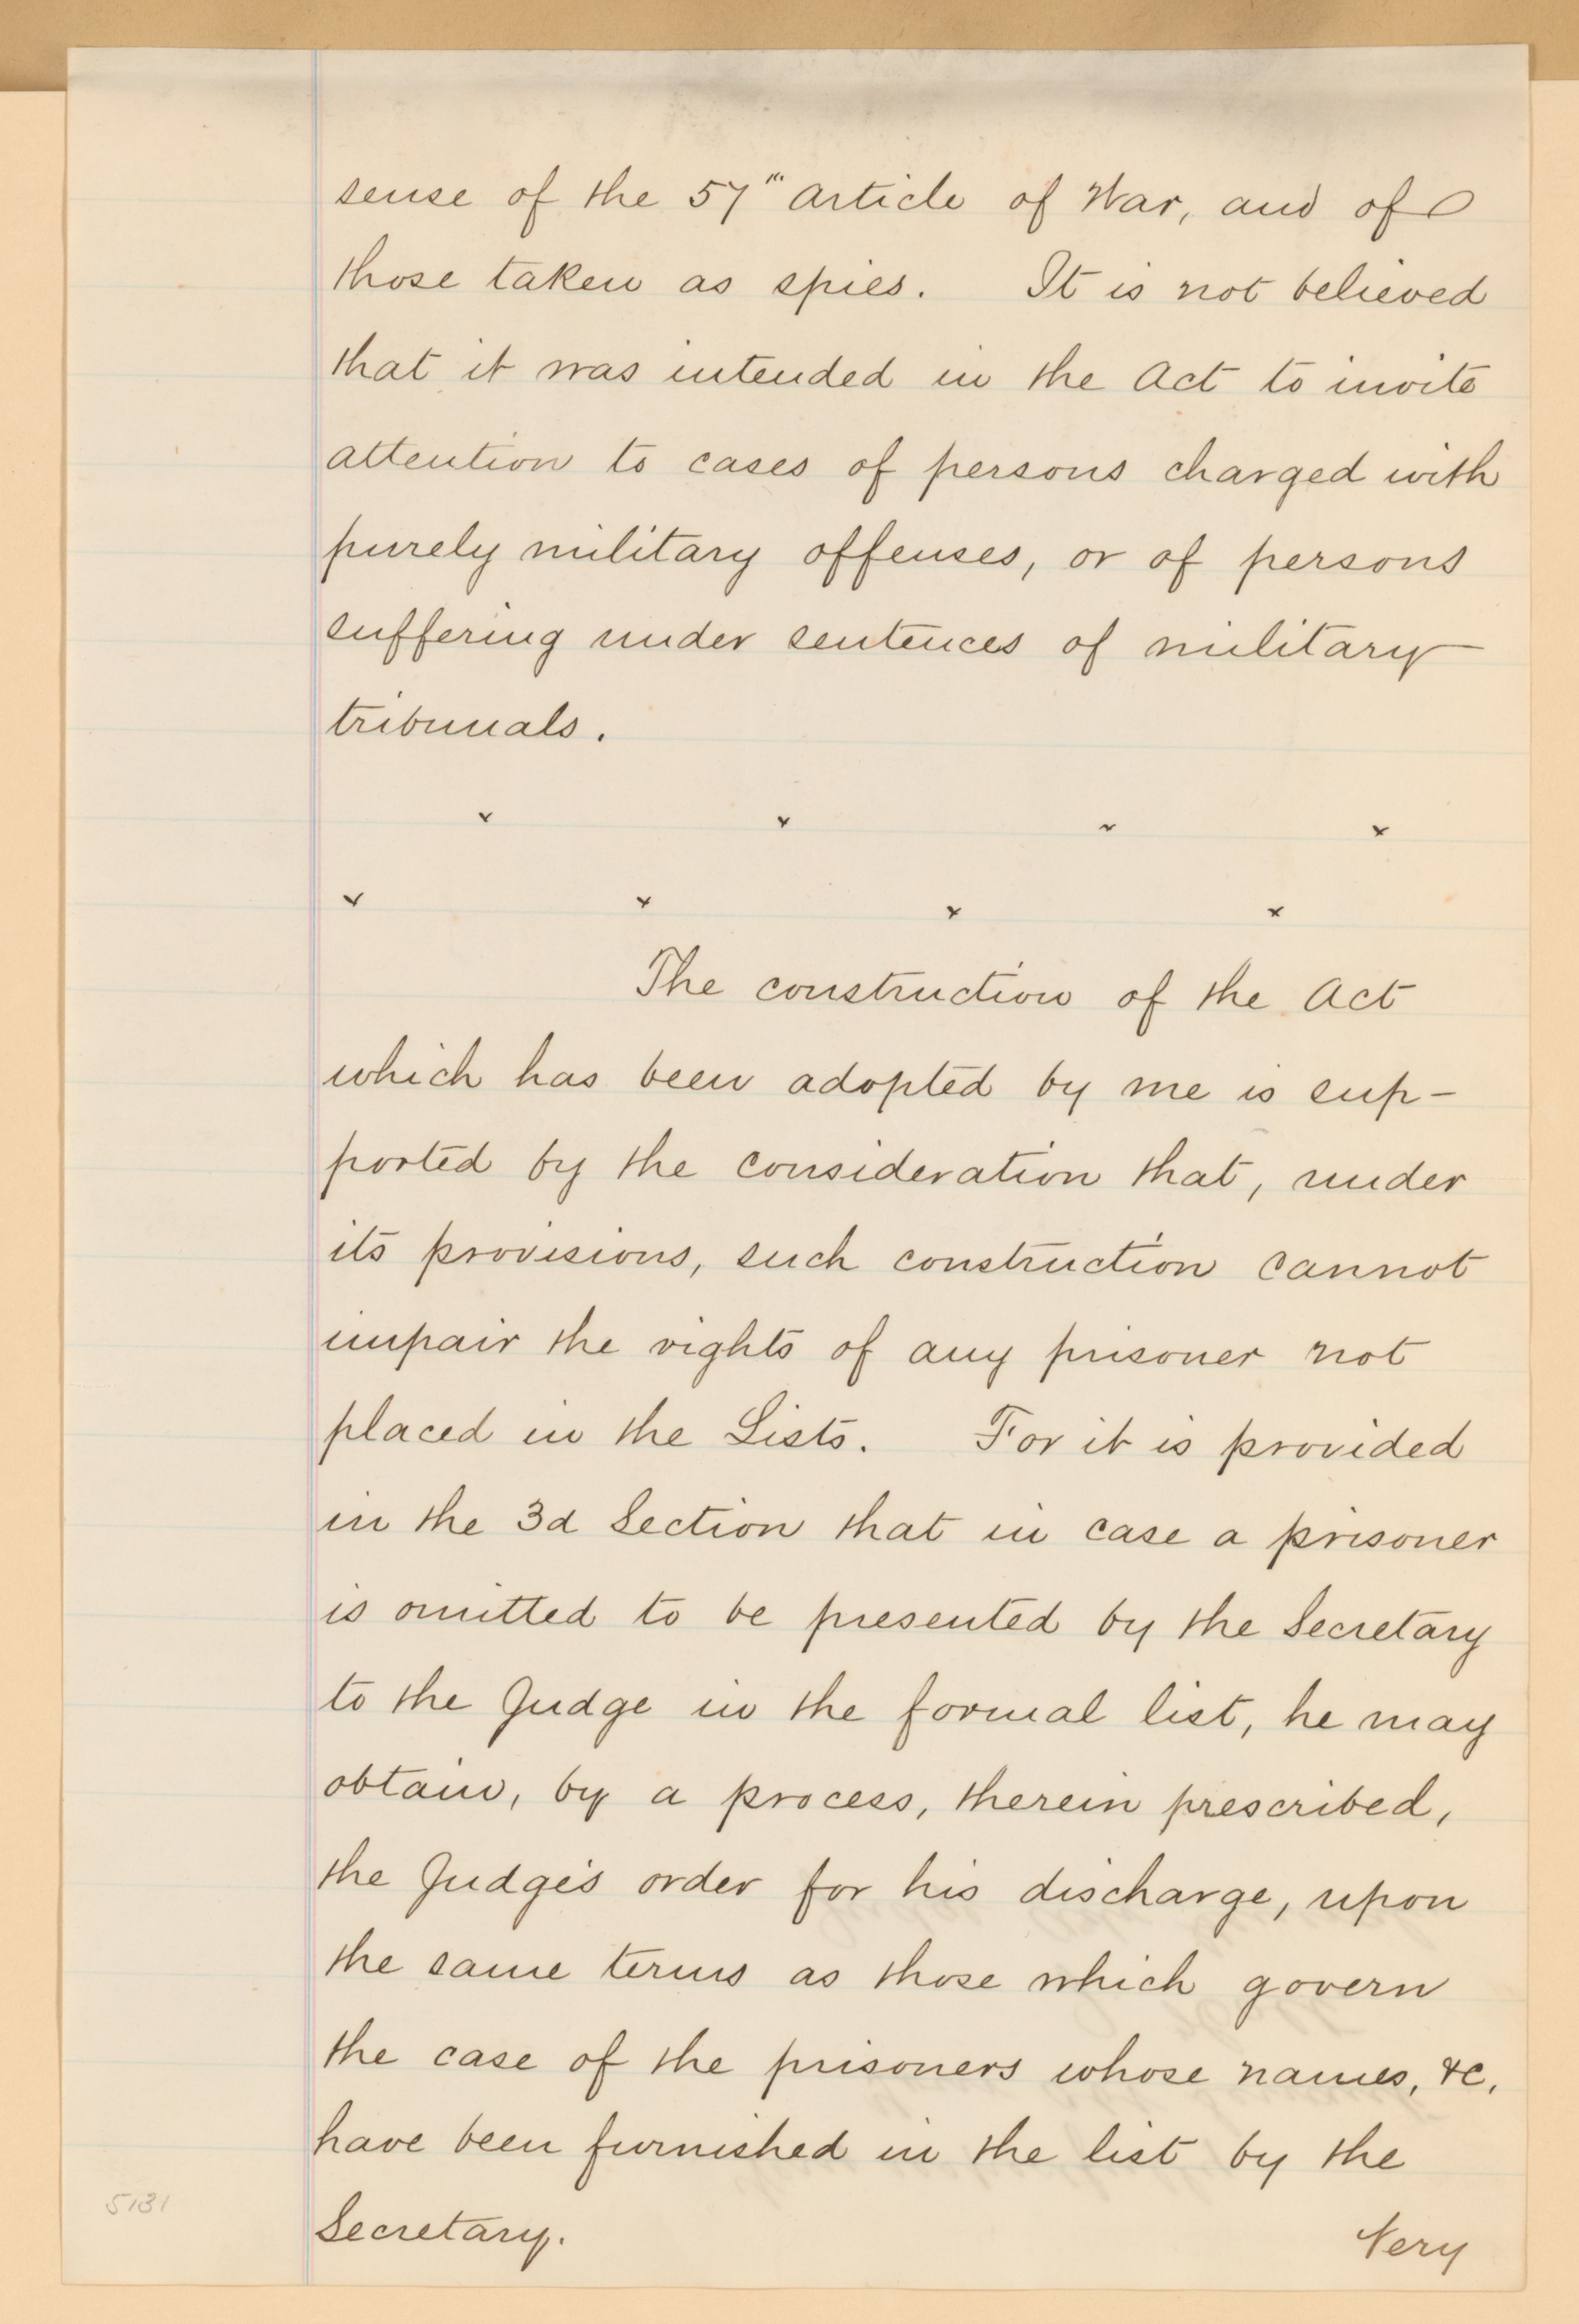 sense of the 57" Article of War, and of
those taken as spies. It is not believed
that it was intended in the Act to invite
attention to cases of persons charged with
purely military offenses, or of persons
suffering under sentences of military
tribunals.
x x x x
x x x x
The construction of the Act
which has been adopted by me is sup-
ported by the consideration that, under
its provisions, such construction cannot
impair the rights of any prisoner not
placed in the Lists. For it is provided
in the 3d Section that in case a prisoner
is omitted to be presented by the Secretary
to the Judge in the formal list, he may
obtain, by a process, therein prescribed,
the Judge's order for his discharge, upon
the same terms as those which govern
the case of the prisoners whose names, &c,
have been furnished in the list by the
Secretary. Very
5131